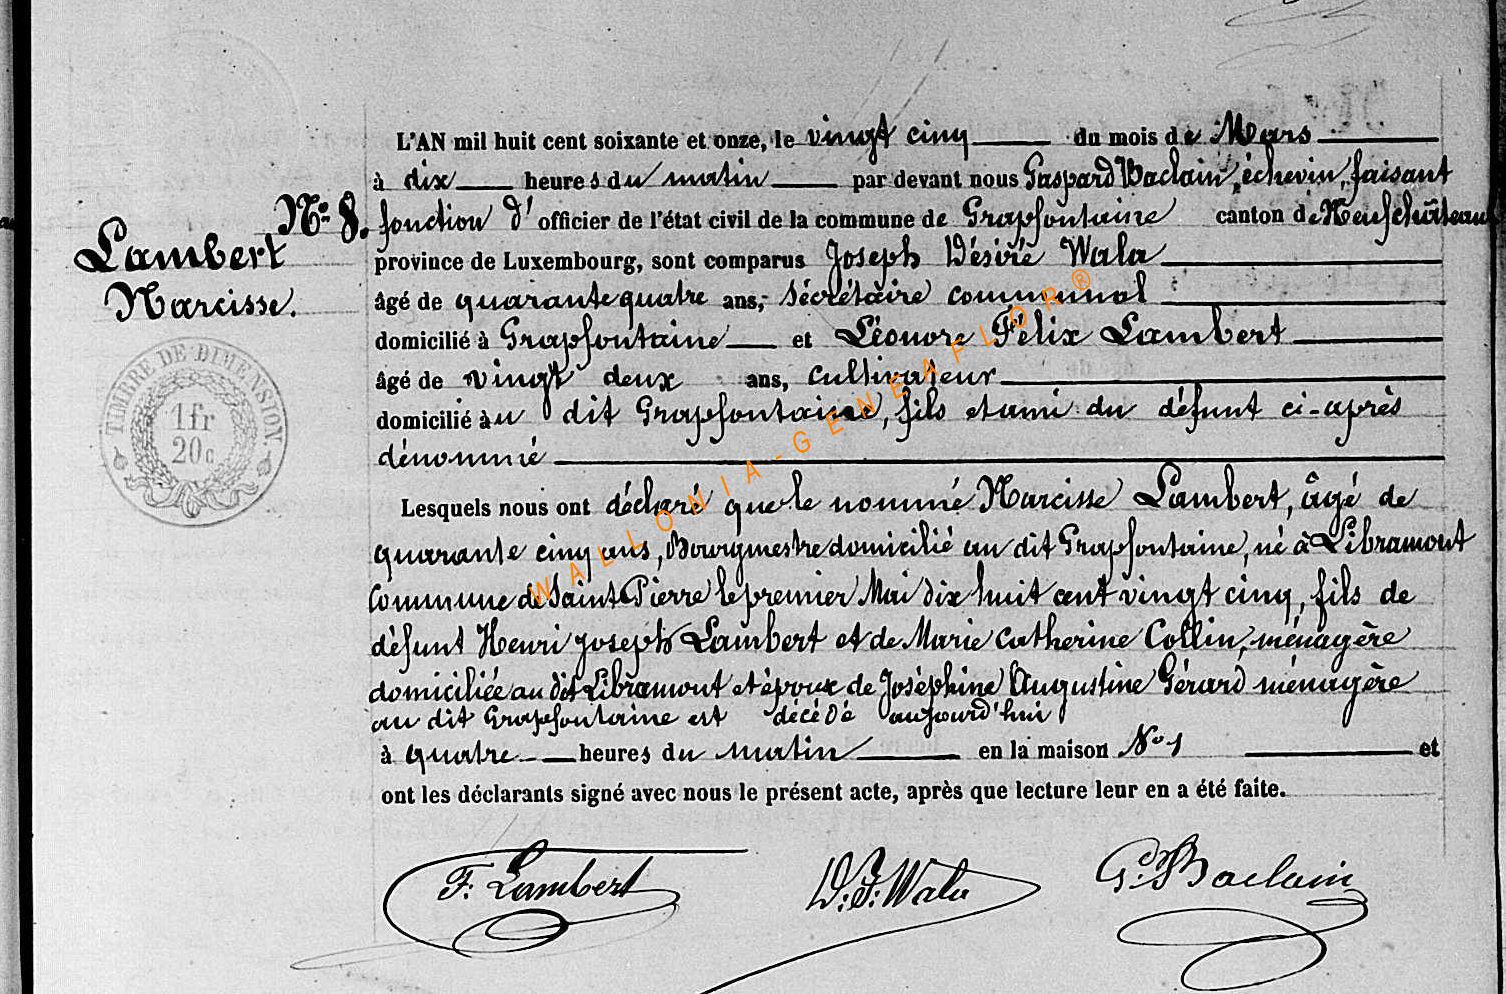 L'AN mil huit cent soixante et onze, le vingt cinq du mois de Mars
à dix heures du matin par devant nous Gaspard Baclain, échevin, faisant
N° 8. fonction d'officier de l'état civil de la commune de Grapfontaine canton de Neufchâteau
Lambert
Narcisse.
province de Luxembourg, sont comparus Joseph Désiré Wala
âgé de quarante quatre ans, sécrétaire communal
domicilié à Grapfontaine et Léonore Félix Lambert
âgé de vingt deux ans, cultivateur
domicilié au dit Grapfontaine, fils et ami du défunt ci-après
dénommé
TIMBRE DE DIMENSION
1fr
20c
Lesquels nous ont déclaré que le nommé Narcisse Lambert, âgé de
quarante cinq ans, Bourgmestre domicilié au dit Grapfontaine, né à Libramont
commune de Saint Pierre le premier Mai dix huit cent vingt cinq, fils de
défunt Henri joseph Lambert et de Marie Catherine Collin, ménagère
domiciliée au dit Libramont et époux de Joséphine Augustine Gérard ménagère
au dit Grapfontaine est décédé aujourd'hui
à quatre heures du matin en la maison N° 1 et
ont les déclarants signé avec nous le présent acte, après que lecture leur en a été faite.
F. Lambert D. J. Wala G. Baclain
WALLONIA-GENEAFLOR®